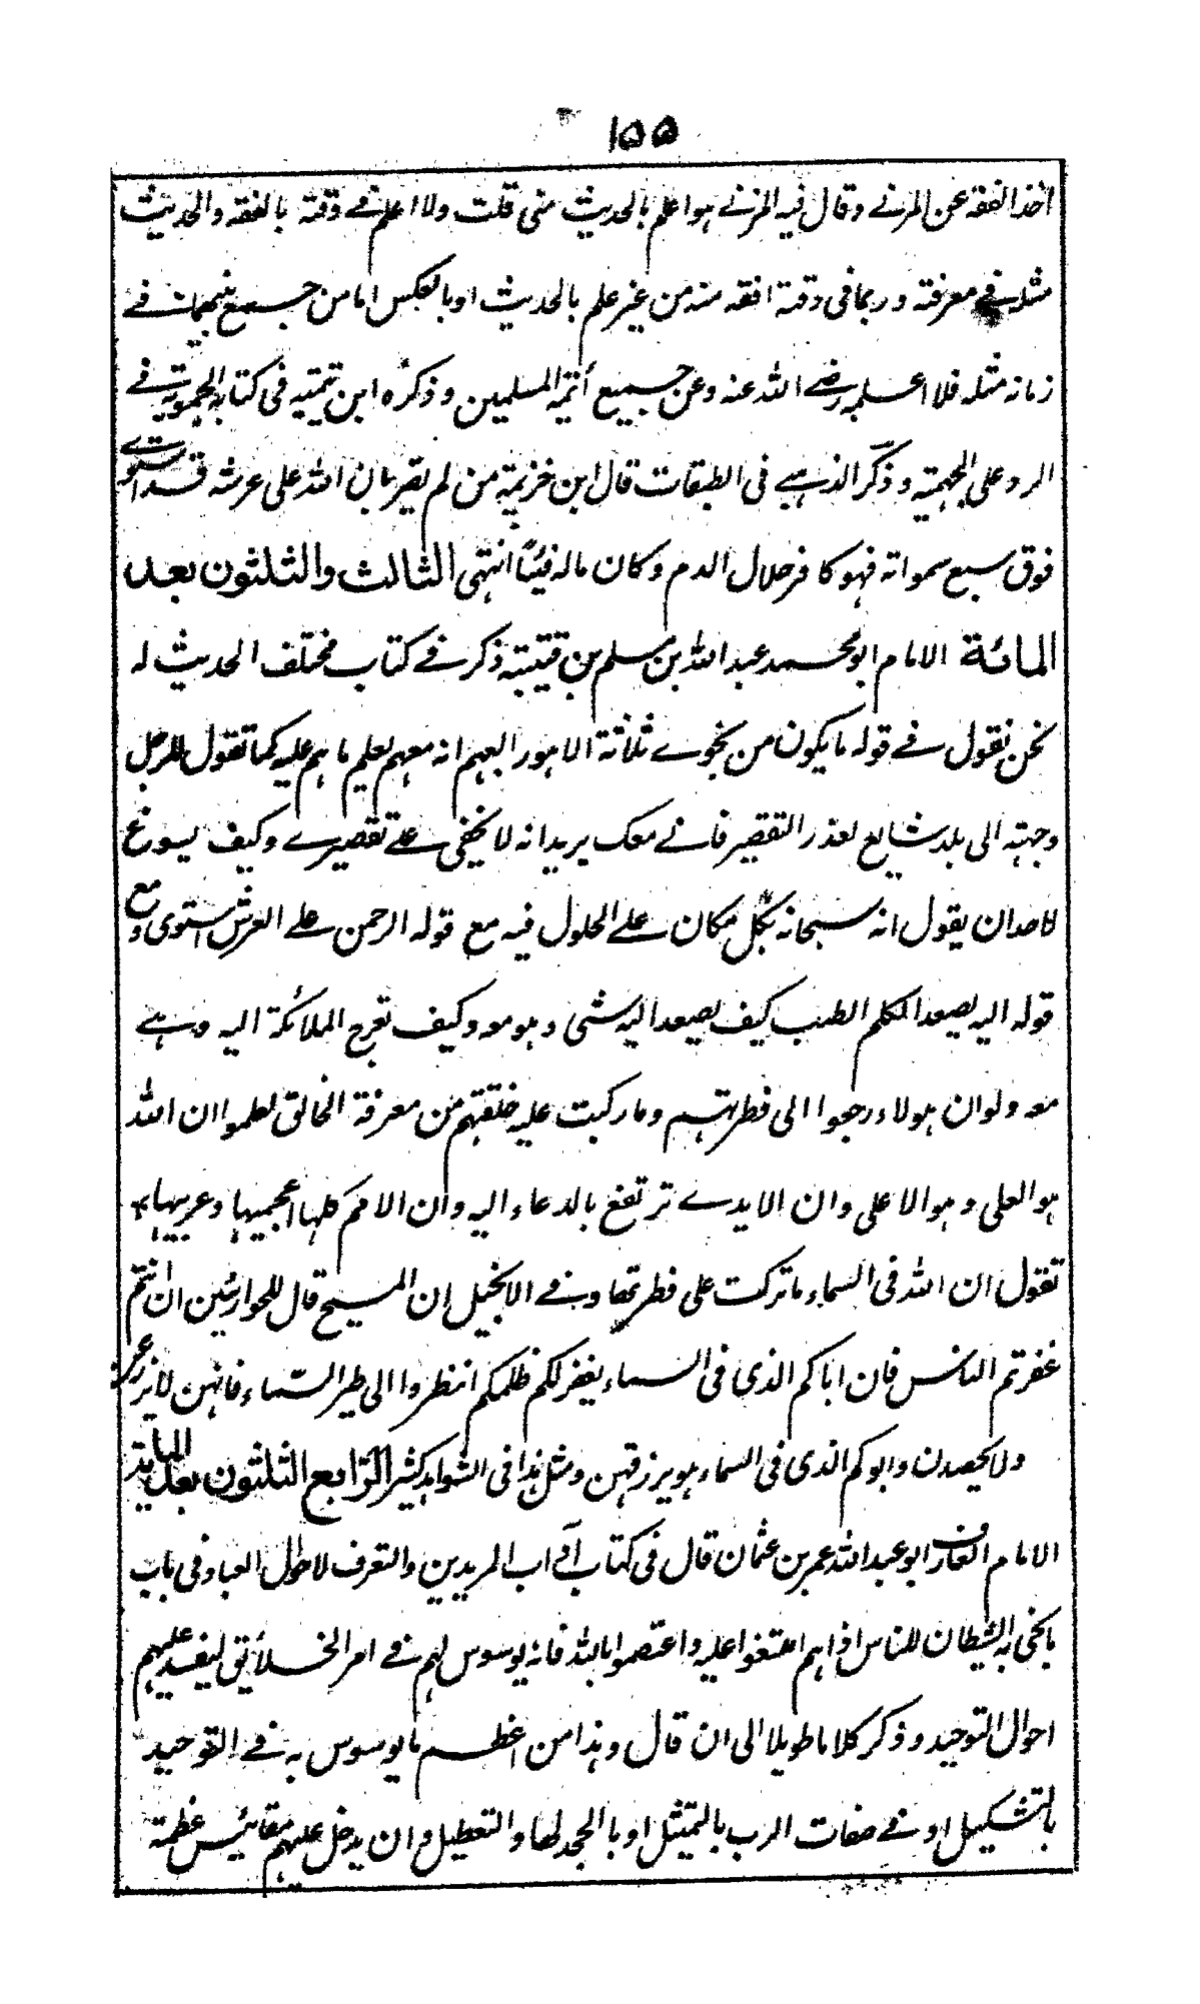 ۱۵۵
اخذ الفقه عن المزنے وقال فیه المزنے هو اعلم بالحدیث منی قلت ولا اعلم فے وقته بالفقه والحدیث
مثله فی معرفة وربما فی وقته افقه منه من غیر علم بالحدیث او بالعکس اما من جمیع بینهما فے
زمانه مثله فلا اعلمه رضے الله عنه وعن جمیع أئمة المسلمین وذکره ابن تیمیه فی کتابه الحمویة فے
الرد علی الجهمیة وذکر الذهبے فی الطبقات قال ابن خزیمة من لم یقر بان الله علی عرشه قد استوے
فوق سبع سمواته فهو کافر حلال الدم وکان ماله فیئًا انتهی الثالث والثلثون بعد
المائة الامام ابو محمد عبد الله بن مسلم بن قتیبة ذکر فے کتاب مختلف الحدیث له
نحن نقول فے قوله ما یکون من نجوے ثلاثة الا هو رابعهم انه معهم یعلم ما هم علیه کما تقول للرجل
وجهته الی بلد شایع احذر التقصیر فانے معک یرید انه لا یخفی علے تقصیرے وکیف یسوغ
لاحد ان یقول انه سبحانه بکل مکان علے الحلول فیه مع قوله الرحمن علے العرش استوی ومع
قوله الیه یصعد الکلم الطیب کیف یصعد الیه شئ وهو معه وکیف تعرج الملائکة الیه وهے
معه ولو ان هولاء رجعوا الی فطرتهم وما رکبت علیه خلقتهم من معرفة الخالق لعلموا ان الله
هو العلی وهو الاعلی وان الایدے ترتفع بالدعاء الیه وان الامم کلها اعجمیها وعربیها
تقول ان الله فی السماء ما ترکت علی فطرتها وفے الانجیل ان المسیح قال للحوارئین ان انتم
غفرتم الناس فان اباکم الذی فی السماء یغفر لکم ظلمکم انظروا الی طیر السماء فانهن لا یزرعن
ولا یحصدن وابوکم الذی فی السماء هو یرزقهن ومثل هذا فی الشواهد کثیر الرابع الثلثون بعد المایة
الامام العارف ابو عبد الله عمر بن عثمان قال فی کتاب آداب المریدین والتعرف لاحوال العباد فی باب
ما یجئ به الشیطان للناس اذا هم امتنعوا علیه واعتصموا بالله فانه یوسوس لهم فے امر الخلائق لیفسد علیهم
احوال التوحید وذکر کلاما طویلا الی ان قال وهذا من اعظم ما یوسوس به فے التوحید
بالتشکیل او فے صفات الرب بالتمثیل او بالجحد لها والتعطیل وان یدخل علیهم مقائیس عظمة